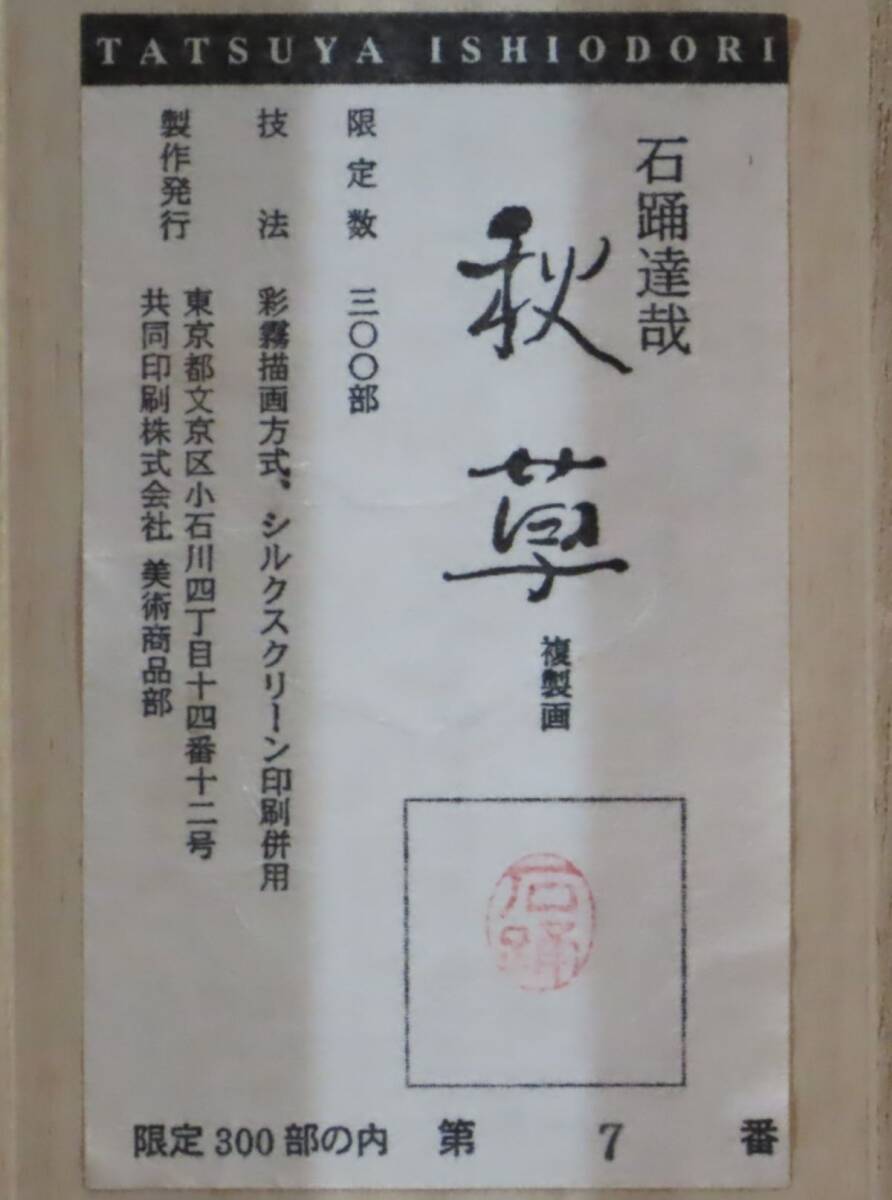 TATSUYA ISHIODORI
石踊達哉
秋草 複製画
石踊
限定数 三〇〇部
技法 彩霧描画方式、シルクスクリーン印刷併用
製作発行 東京都文京区小石川四丁目十四番十二号
共同印刷株式会社 美術商品部
限定300部の内 第 7 番